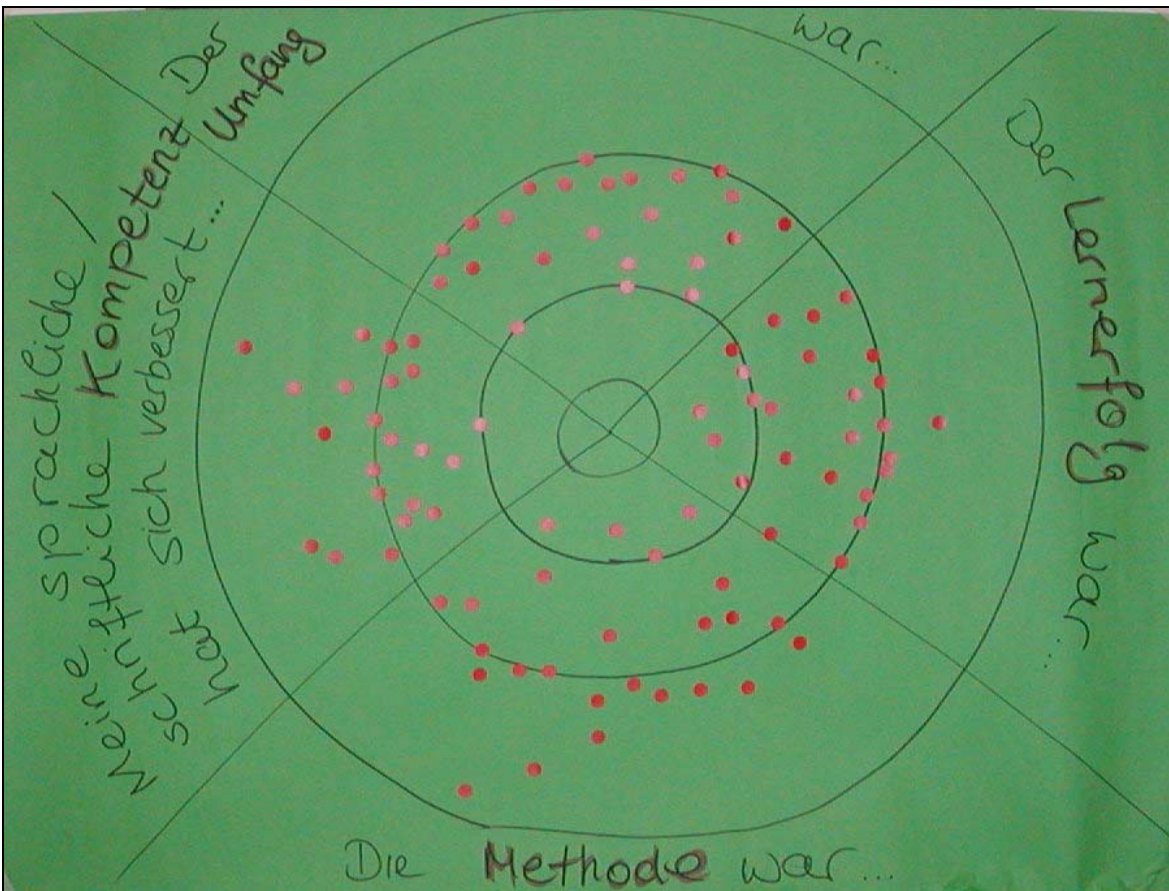 Der
Umfang
war...
Der Lernerfolg war...
Die Methode war...
Meine sprachliche /
schriftliche Kompetenz
hat sich verbessert...